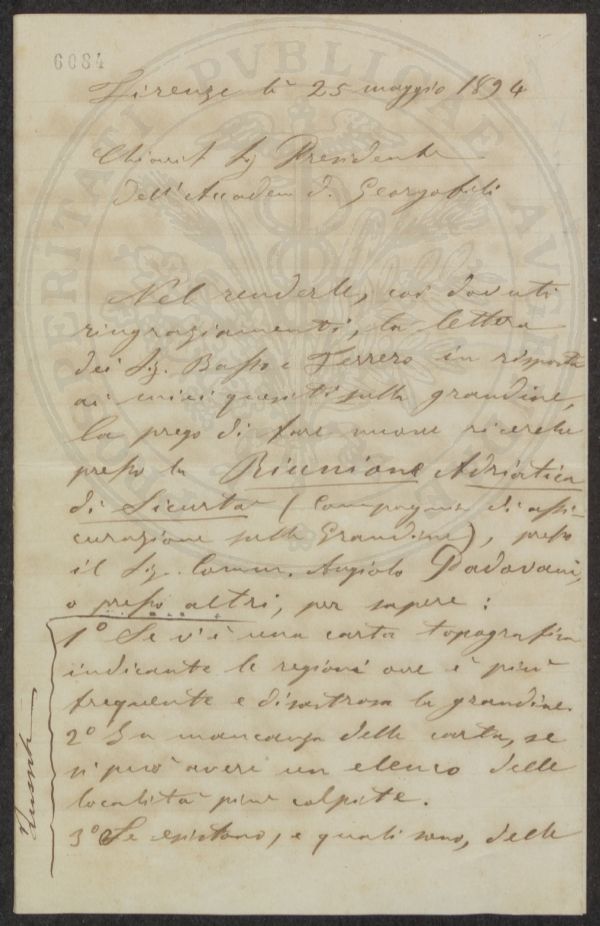 6084
Firenze li 25 maggio 1894
Chiaris Sig Presidente
dell'Accadem d. Georgofili
Nel renderle, coi dovuti
ringraziamenti, la lettera
dei Sig. Basso e Ferrero in risposta
ai miei quesiti sulla grandine,
la prego di fare nuove ricerche
presso la Riunione Adriatica
di Sicurtà (Compagnia di assi-
curazione sulla Grandine), presso
il Sig. Comm. Angiolo Padovani,
o presso altri, per sapere:
1º Se v'è una carta topografica
indicante le regioni ove è più
frequente e disastrosa la grandine.
2º In mancanza della carta, se
si può avere un elenco delle
località più colpite.
3º Se esistono, e quali sono, delle